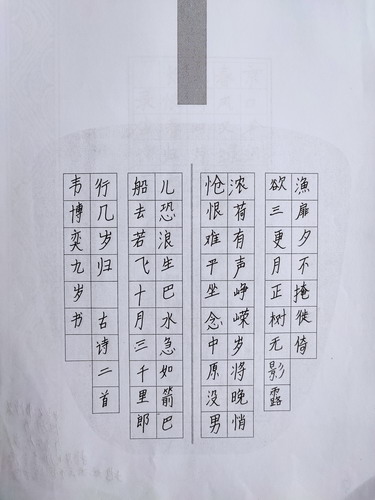 漁扉夕不掩徙倚
欲三更月正树无影露
浓荷有声峥嵘岁将晚悄
怆恨难平坐念中原没男
儿恐浪生巴水急如箭巴
船去若飞十月三千里郎
行几岁归 古诗二首
韦博奕九岁书